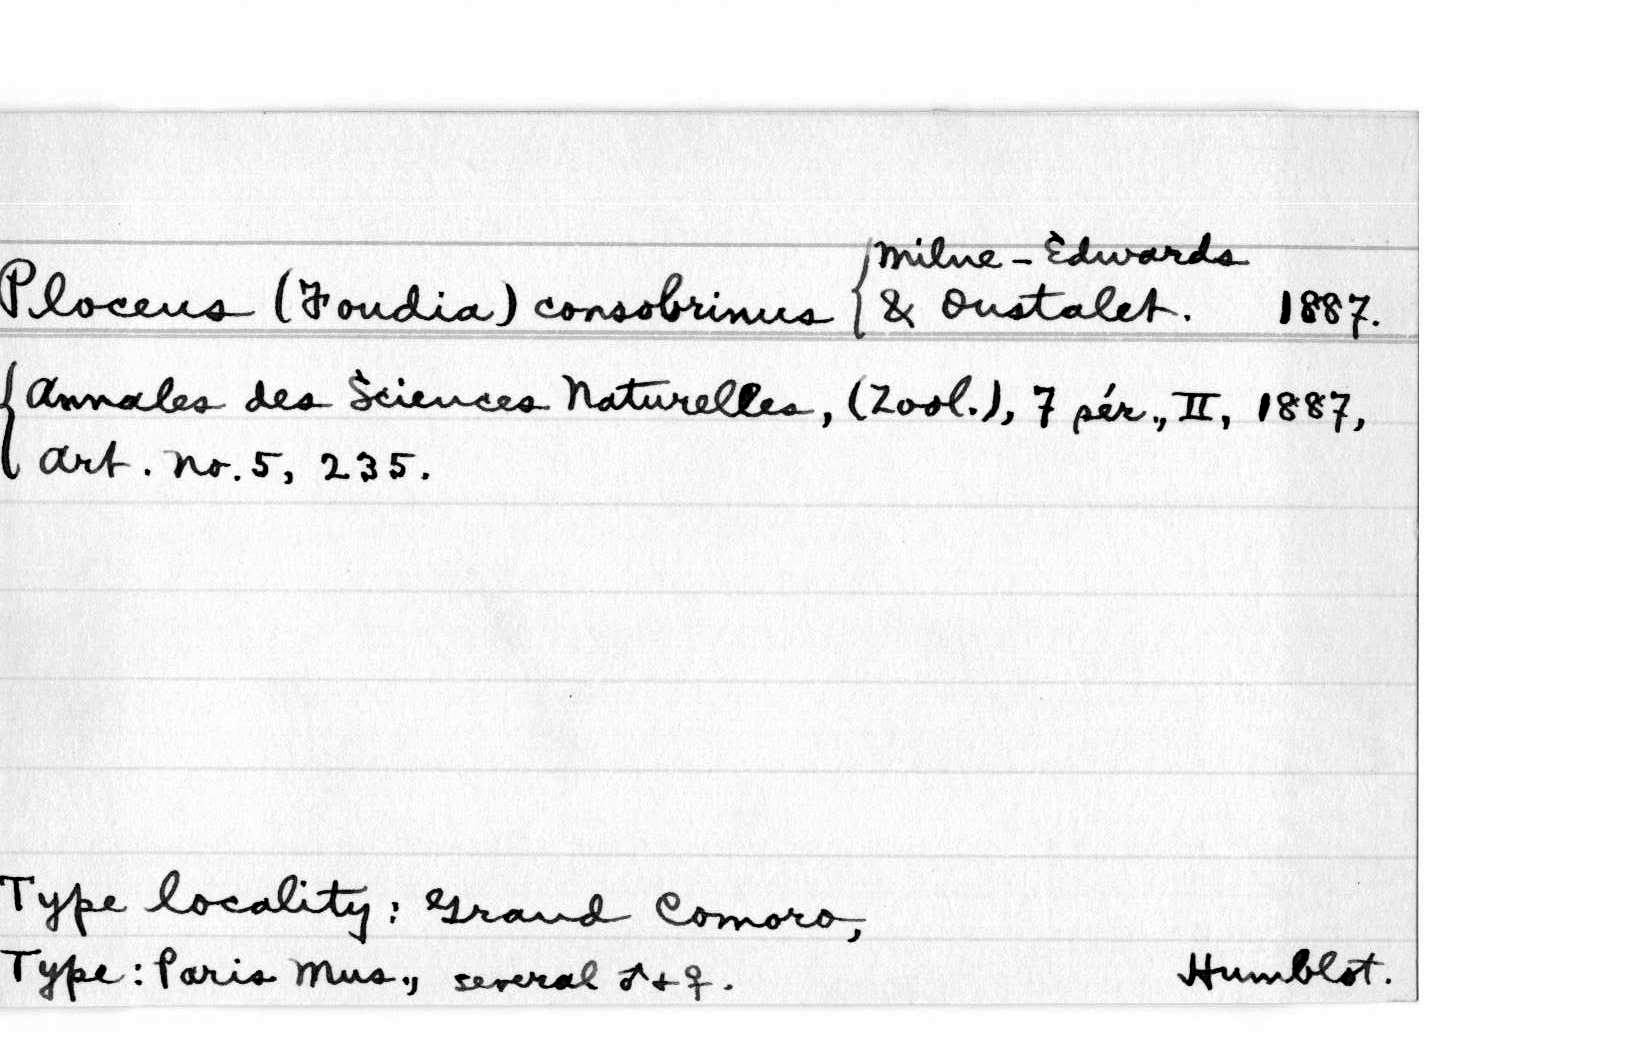 Ploceus (Foudia) consobrinus { Milne-Edwards & Oustalet. 1887.
{ Annales des Sciences Naturelles, (Zool.), 7 sér., II, 1887,
Art. no. 5, 235.
Type locality: Grand Comoro,
Type: Paris Mus., several ♂ + ♀. Humblot.